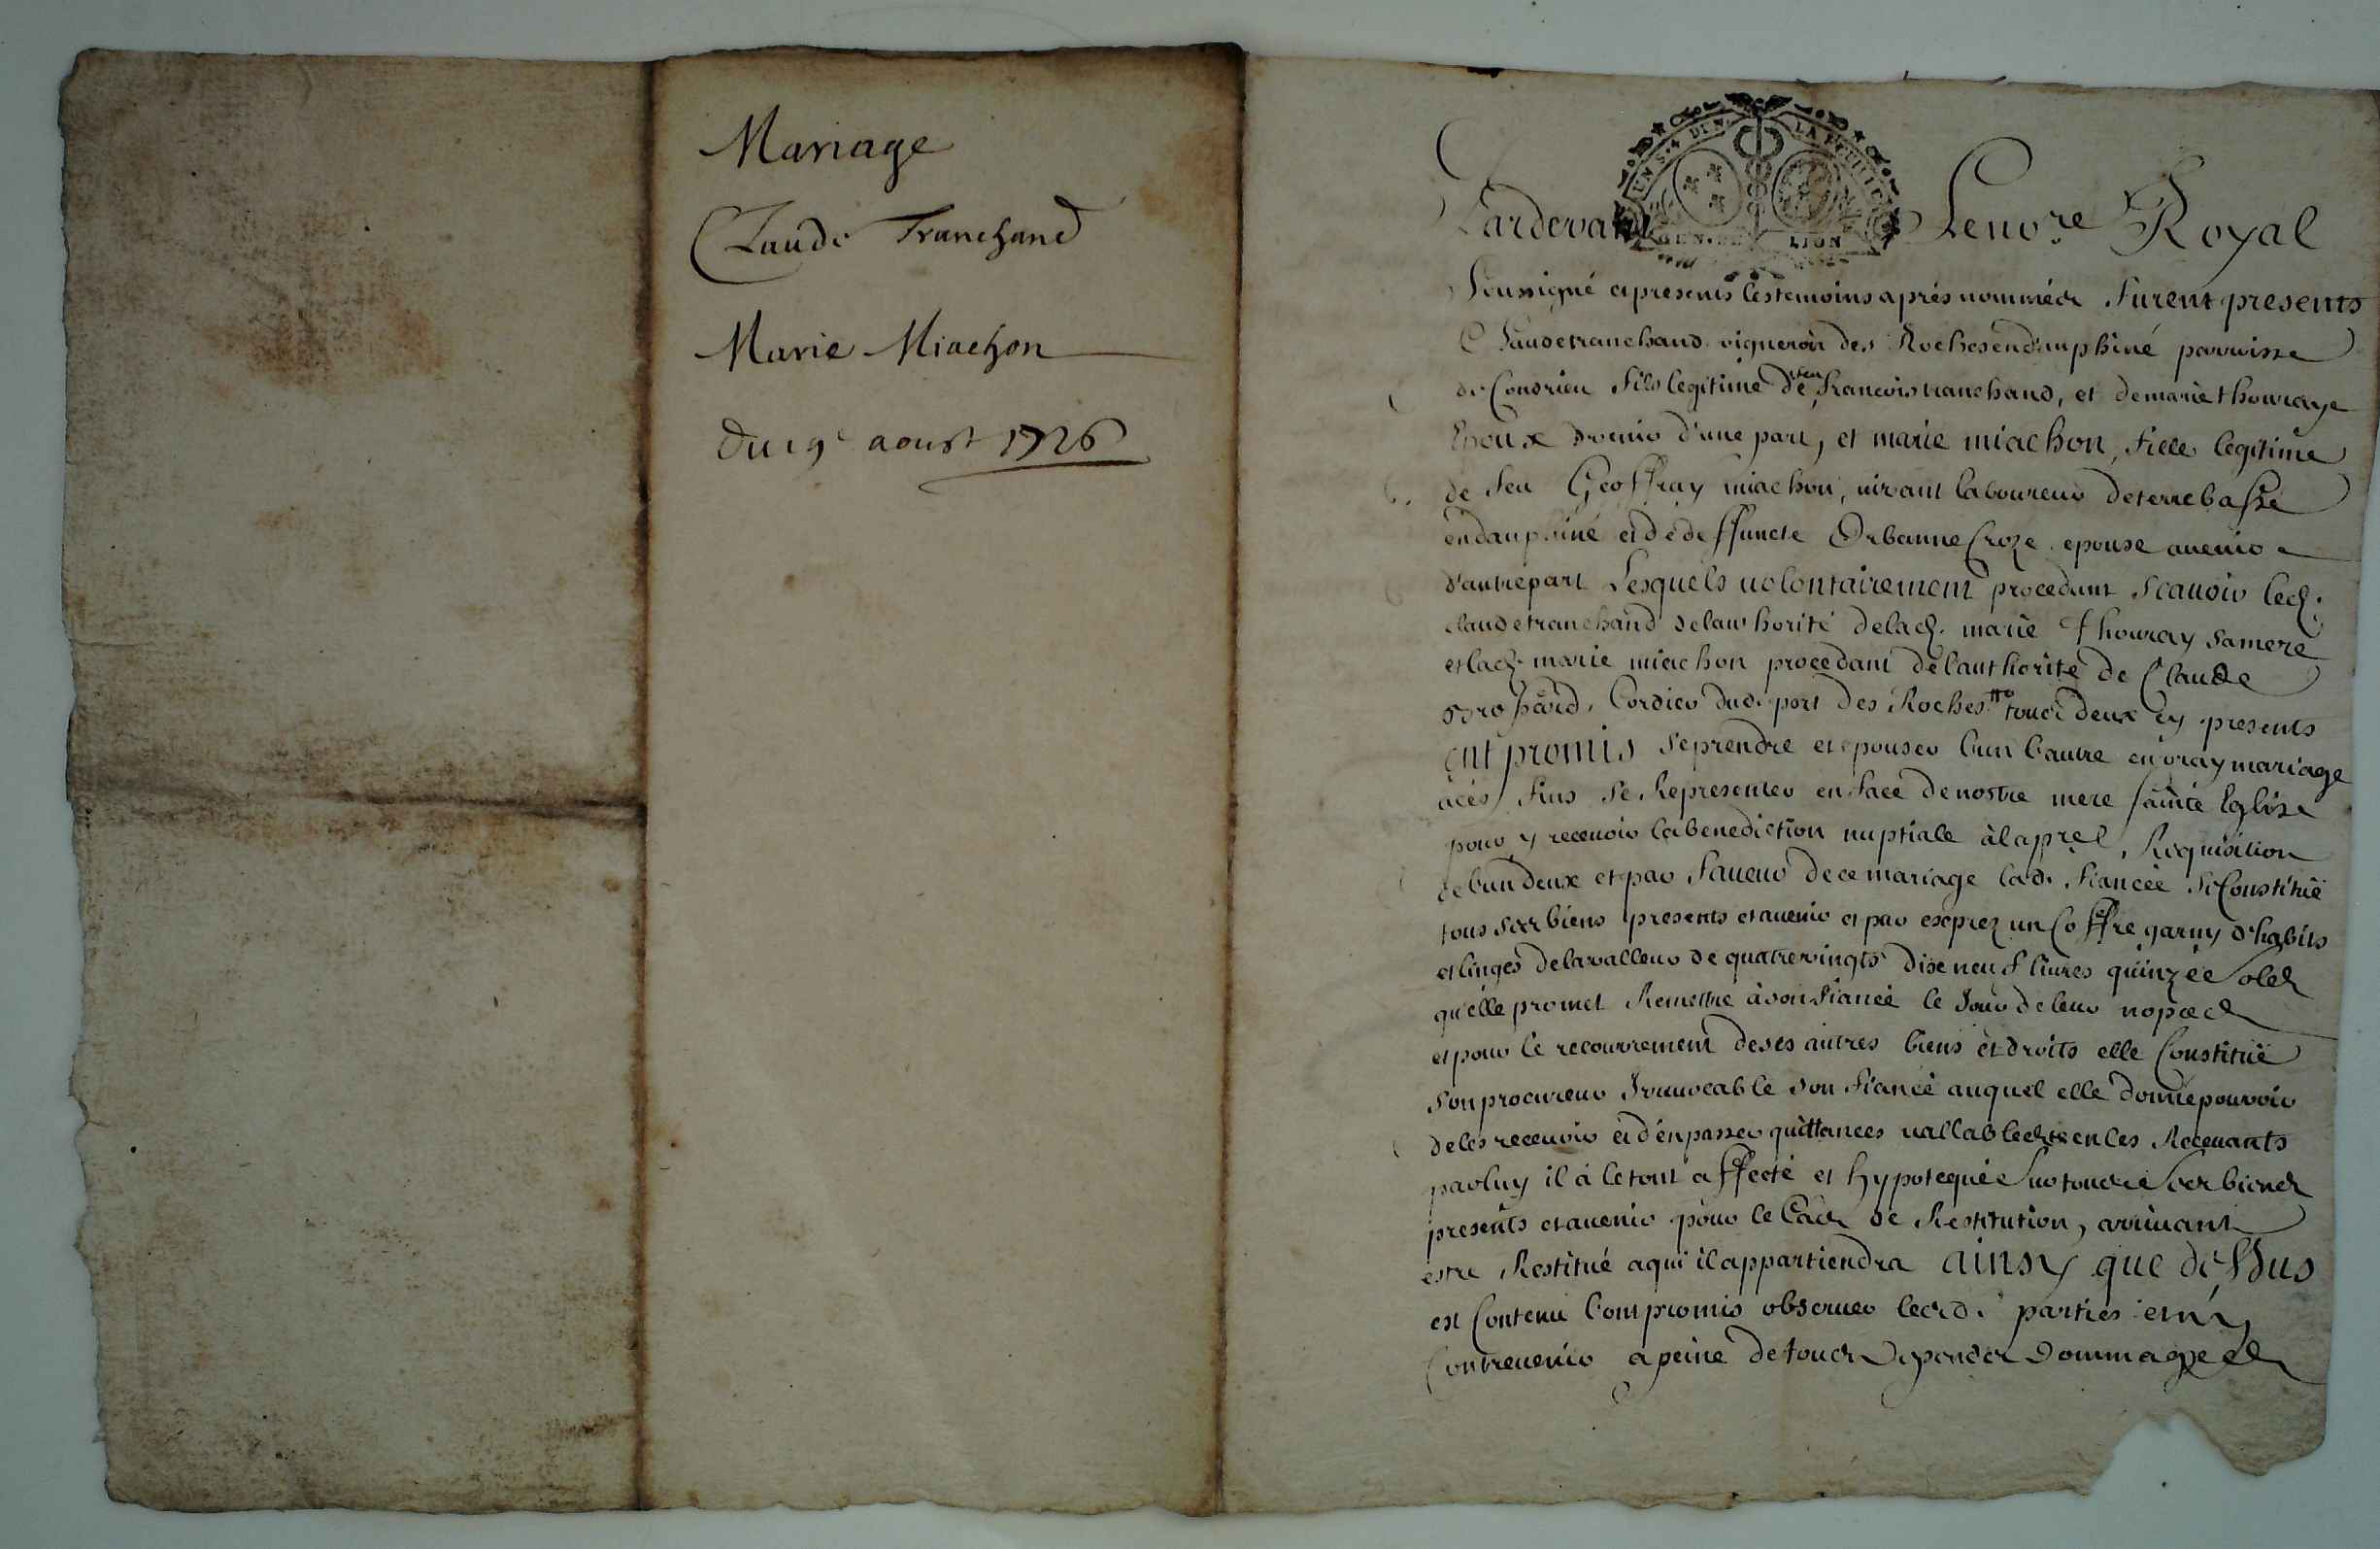 Mariage
Claude Tranchand
Marie Miachon
du 19e aoust 1726
UN S. 4 DEN. LA FEUILLE
GEN. DE LION
Pardevant Le no.re Royal
Soussigné et presents les temoins aprés nommés furent presents
Claude tranchand vigneron des Roches en dauphiné parroisse
de Condrieu fils legitime de feu francois tranchand, et de marie thouraye
Epoux avenir d'une part, et marie miachon, fille legitime
de feu Geoffray miachon, vivant laboureur de terrebasse
en dauphiné et de deffuncte Orbanne Croze epouse avenir
d'autre part Lesquels volontairement procedant scavoir led.
claude tranchand de lauthorité de lad. marie thouray sa mere
et lad. marie miachon procedant de l'authorité de Claude
Cordier dud. port des Roches tous deux icy presents
ont promis se prendre et epouser l'un l'autre en vray mariage
a ces fins se Representer en face de nostre mere sainte Eglise
pour y recevoir la benediction nuptiale à la pre. Requisition
de l'un deux et par faveur de ce mariage lad. fiancée se Constitüe
tous ses biens presents et avenir et par exprez un Coffre garny d'habits
et linges de la valleur de quatrevingts dixe neuf livres quinze sols
qu'elle promet Remettre à son fiancé le Jour de leur nopces
et pour le recouvrement de ses autres biens et droits elle Constitüe
son procureur Irrevocable son fiancé auquel elle donne pouvoir
de les recevoir et d'en passer quittances vallables et en les Recevants
par luy il à le tout affecté et hypotequé sur tous ses biens
presents et avenir pour le Cas de Restitution, arrivant
estre Restitué a qui il appartiendra ainsy que dessus
est Contenu l'ont promis observer lesd. parties et n'y
Contrevenir a peine de tous depends dommages